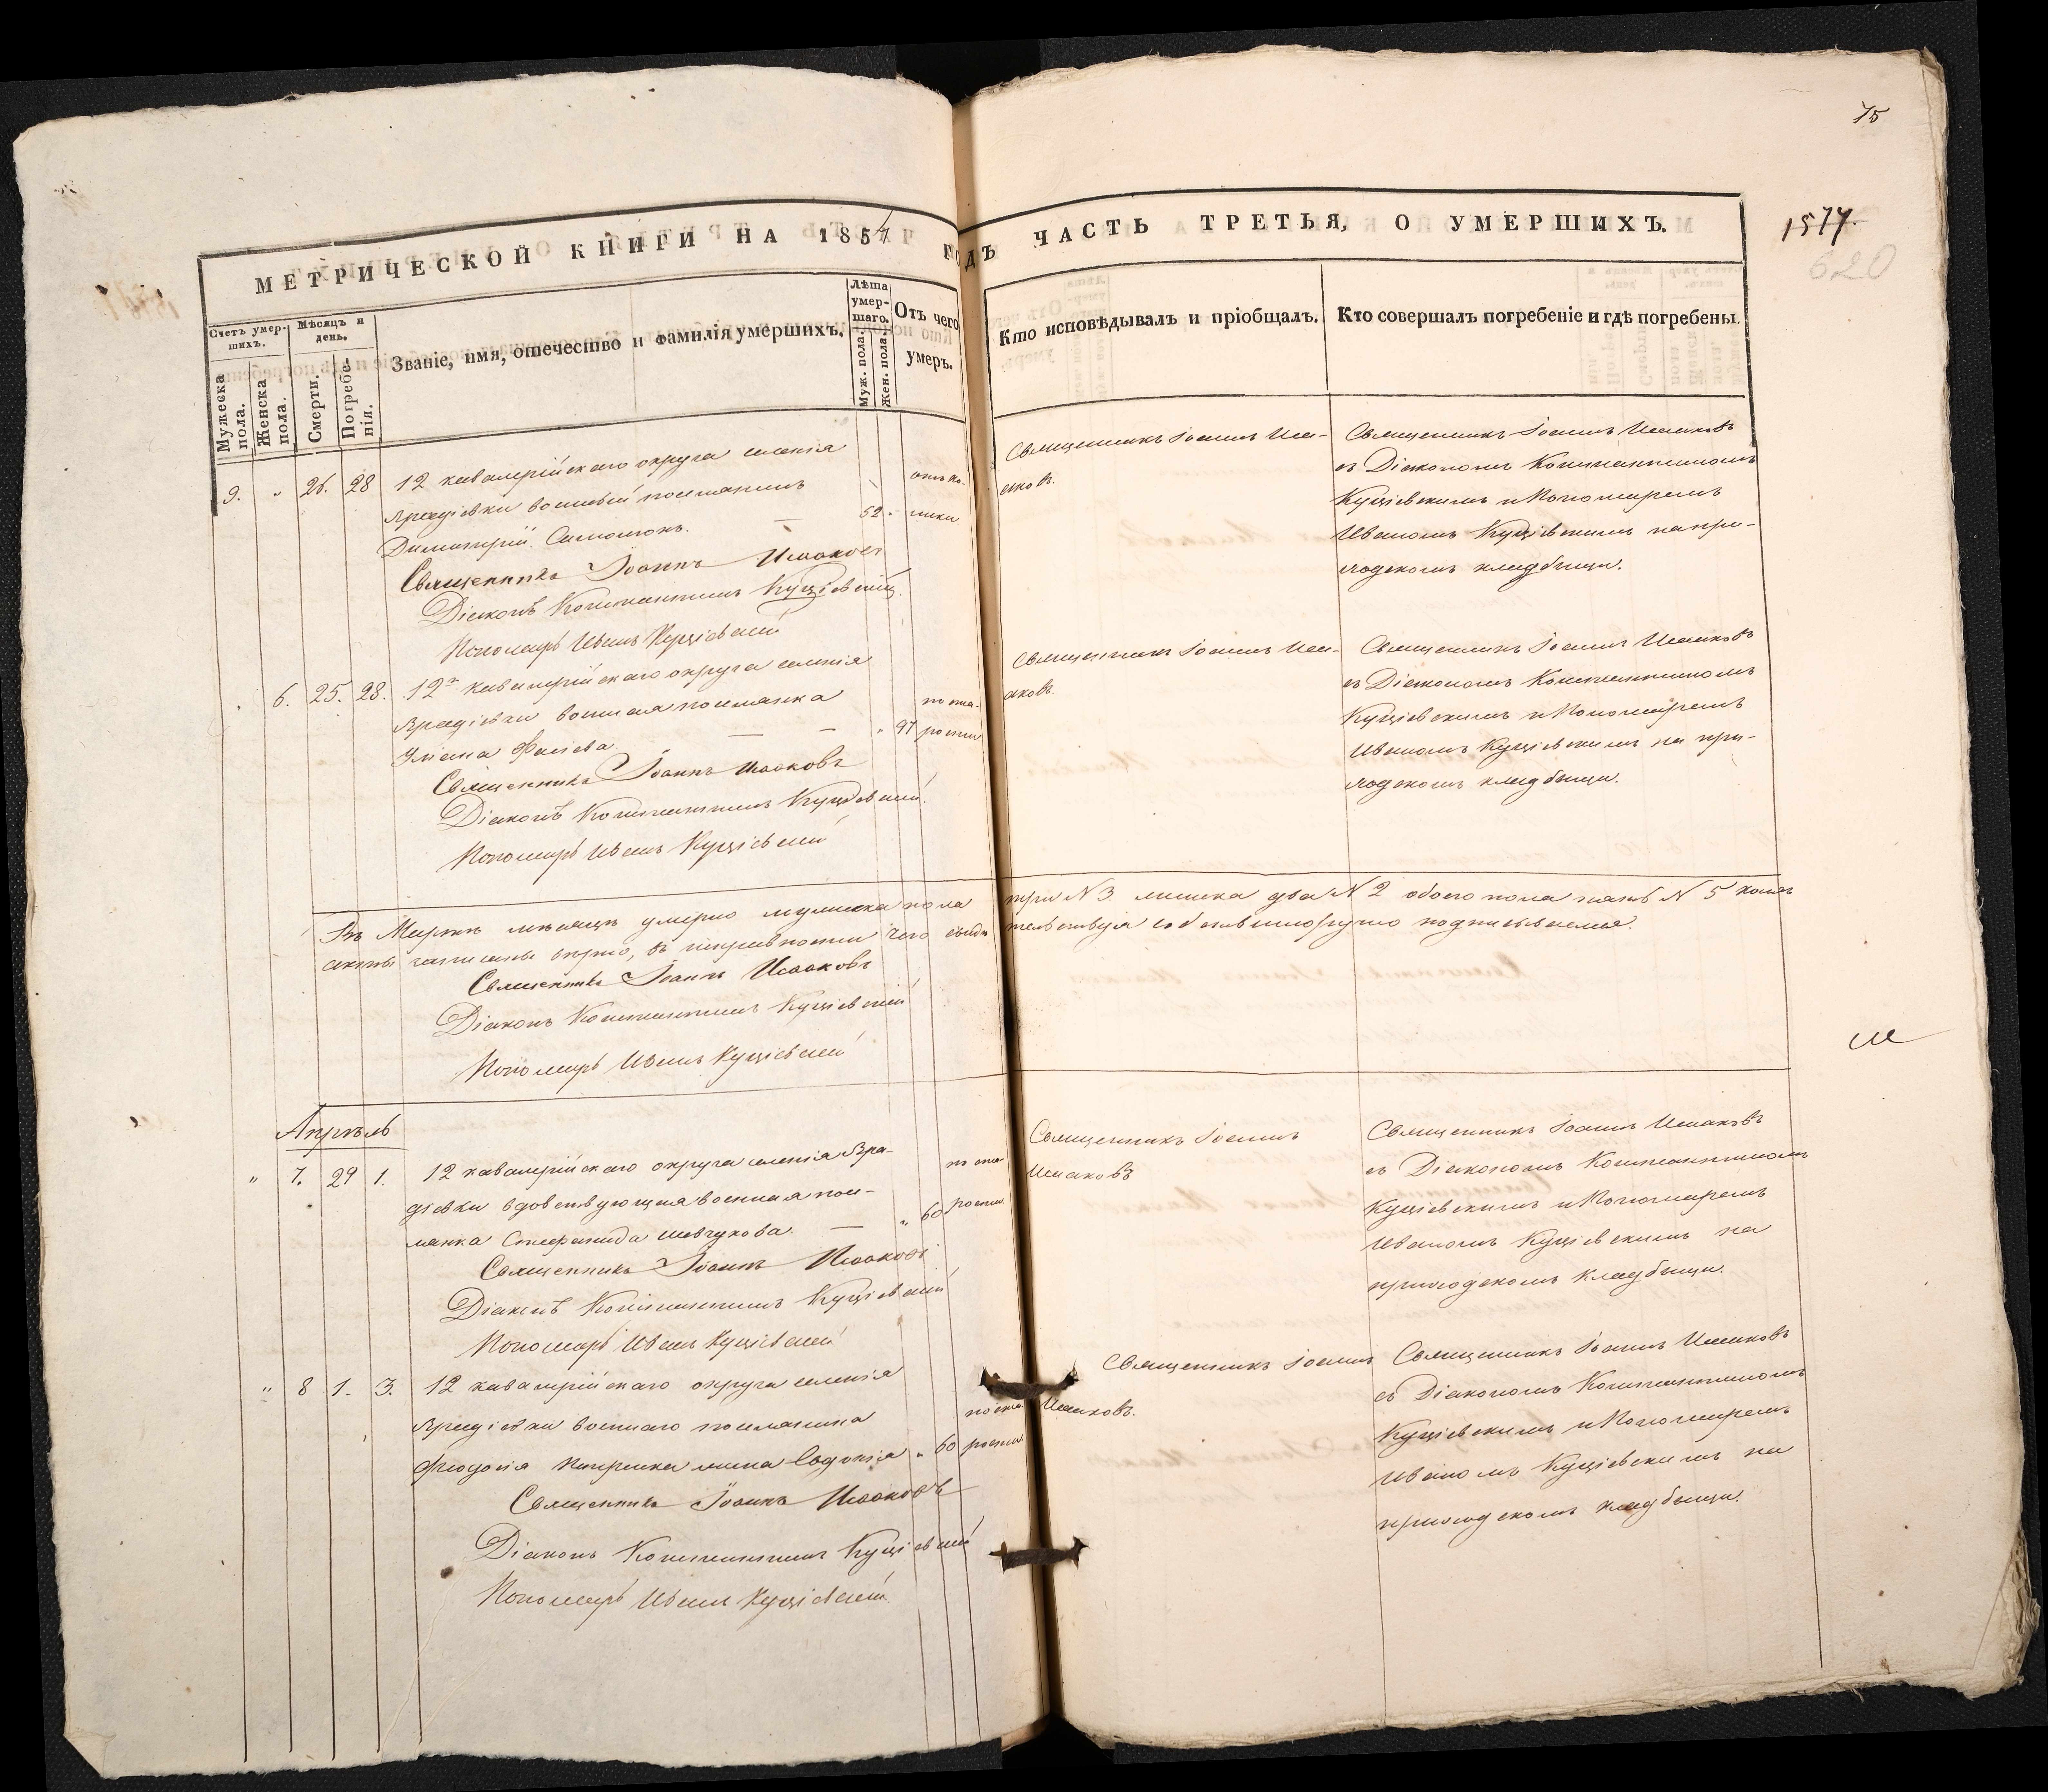 75
МЕТРИЧЕСКОЙ КНИГИ НА 1857 ГОДЪ ЧАСТЬ ТРЕТЬЯ, О УМЕРШИХЪ.
1577.
620
Счетъ умершихъ.
Мужеска пола.
Женска пола.
Мѣсяцъ и день.
Смерти.
Погребенія.
Званіе, имя, отечество и фамилія умершихъ.
Лѣта умершаго.
Муж. пола.
Жен. пола.
Отъ чего умеръ.
Кто исповѣдывалъ и пріобщалъ.
Кто совершалъ погребеніе и гдѣ погребены.
9. " 26. 28 12 кавалерійскаго округа селенія
Врадіевки военный поселянинъ
Димитрій 52
Священникъ Іоаннъ Исааковъ
Діаконъ Константинъ Куціевскій
Пономарь Иванъ Куціевскій
Священникъ Іоаннъ Иса-
аковъ.
Священникъ Іоаннъ Исааковъ
съ Діакономъ Константиномъ
Куціевскимъ и Пономаремъ
Иваномъ Куціевскимъ на при-
ходскомъ кладбищи.
6. 25. 28. 12го кавалерійскаго округа селенія
Врадіевки военная поселянка
97
Священникъ Іоаннъ Исааковъ
Діаконъ Константинъ Куціевскій
Пономарь Иванъ Куціевскій
отъ ста-
рости
Священникъ Іоаннъ Иса-
аковъ.
Священникъ Іоаннъ Исааковъ
съ Діакономъ Константиномъ
Куціевскимъ и Пономаремъ
Иваномъ Куціевскимъ на при-
ходскомъ кладбищи.
Въ Мартѣ мѣсяцѣ умерло мужеска пола три N 3. женска два N 2 обоего пола пять N 5 коихъ
акты записаны вѣрно, въ исправности чего свидѣтельствуя собственноручно подписываемся.
Священникъ Іоаннъ Исааковъ
Діаконъ Константинъ Куціевскій
Пономарь Иванъ Куціевскій
Апрѣль
" 7. 29 1. 12 кавалерійскаго округа селенія Вра-
діевки вдовствующая военная посе-
лянка Стефанида Шевчукова. " 60
Священникъ Іоаннъ Исааковъ
Діаконъ Константинъ Куціевскій
Пономарь Иванъ Куціевскій
отъ ста-
рости.
Священникъ Іоаннъ
Исааковъ
Священникъ Іоаннъ Исааковъ
съ Діакономъ Константиномъ
Куціевскимъ и Пономаремъ
Иваномъ Куціевскимъ на
приходскомъ кладбищи.
" 8 1. 3. 12 кавалерійскаго округа селенія
Врадіевки военнаго поселянина
жена Евдокія " 60
Священникъ Іоаннъ Исааковъ
Діаконъ Константинъ Куціевскій
Пономарь Иванъ Куціевскій
рости.
Священникъ Іоаннъ
Исааковъ.
Священникъ Іоаннъ Исааковъ
съ Діакономъ Константиномъ
Куціевскимъ и Пономаремъ
Иваномъ Куціевскимъ на
приходскомъ кладбищи.